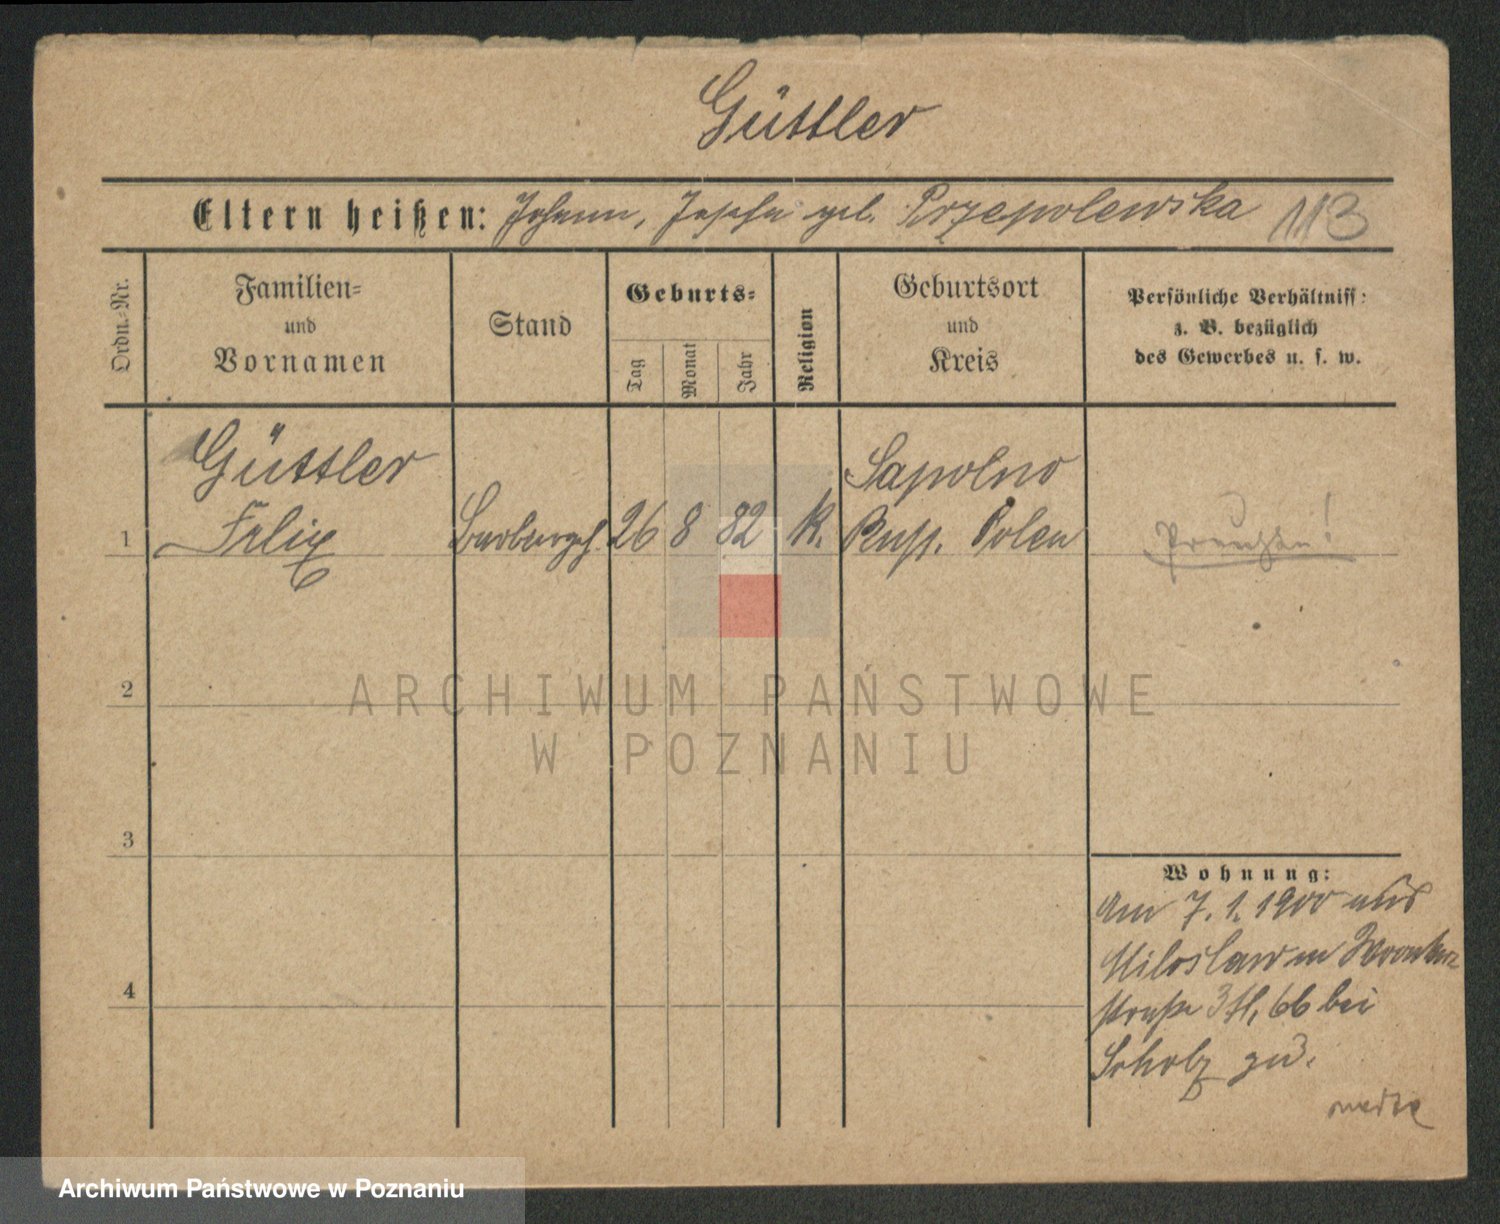 Güttler
Eltern heißen: Johann, Josefa geb. Przepolewska 113
Ordn.-Nr.
Familien-
und
Vornamen
Stand
Geburts-
Tag
Monat
Jahr
Religion
Geburtsort
und
Kreis
Persönliche Verhältniss:
z. B. bezüglich
des Gewerbes u. s. w.
Güttler
Sapolno
1 Felix Barbiergeh. 26 8 82 K. Russ. Polen Preußen!
2
ARCHIWUM PAŃSTWOWE
W POZNANIU
3
Wohnung:
Am 7. 1. 1900 aus
Miloslaw in
4
straße 6b bei
Scholz zu.
Archiwum Państwowe w Poznaniu